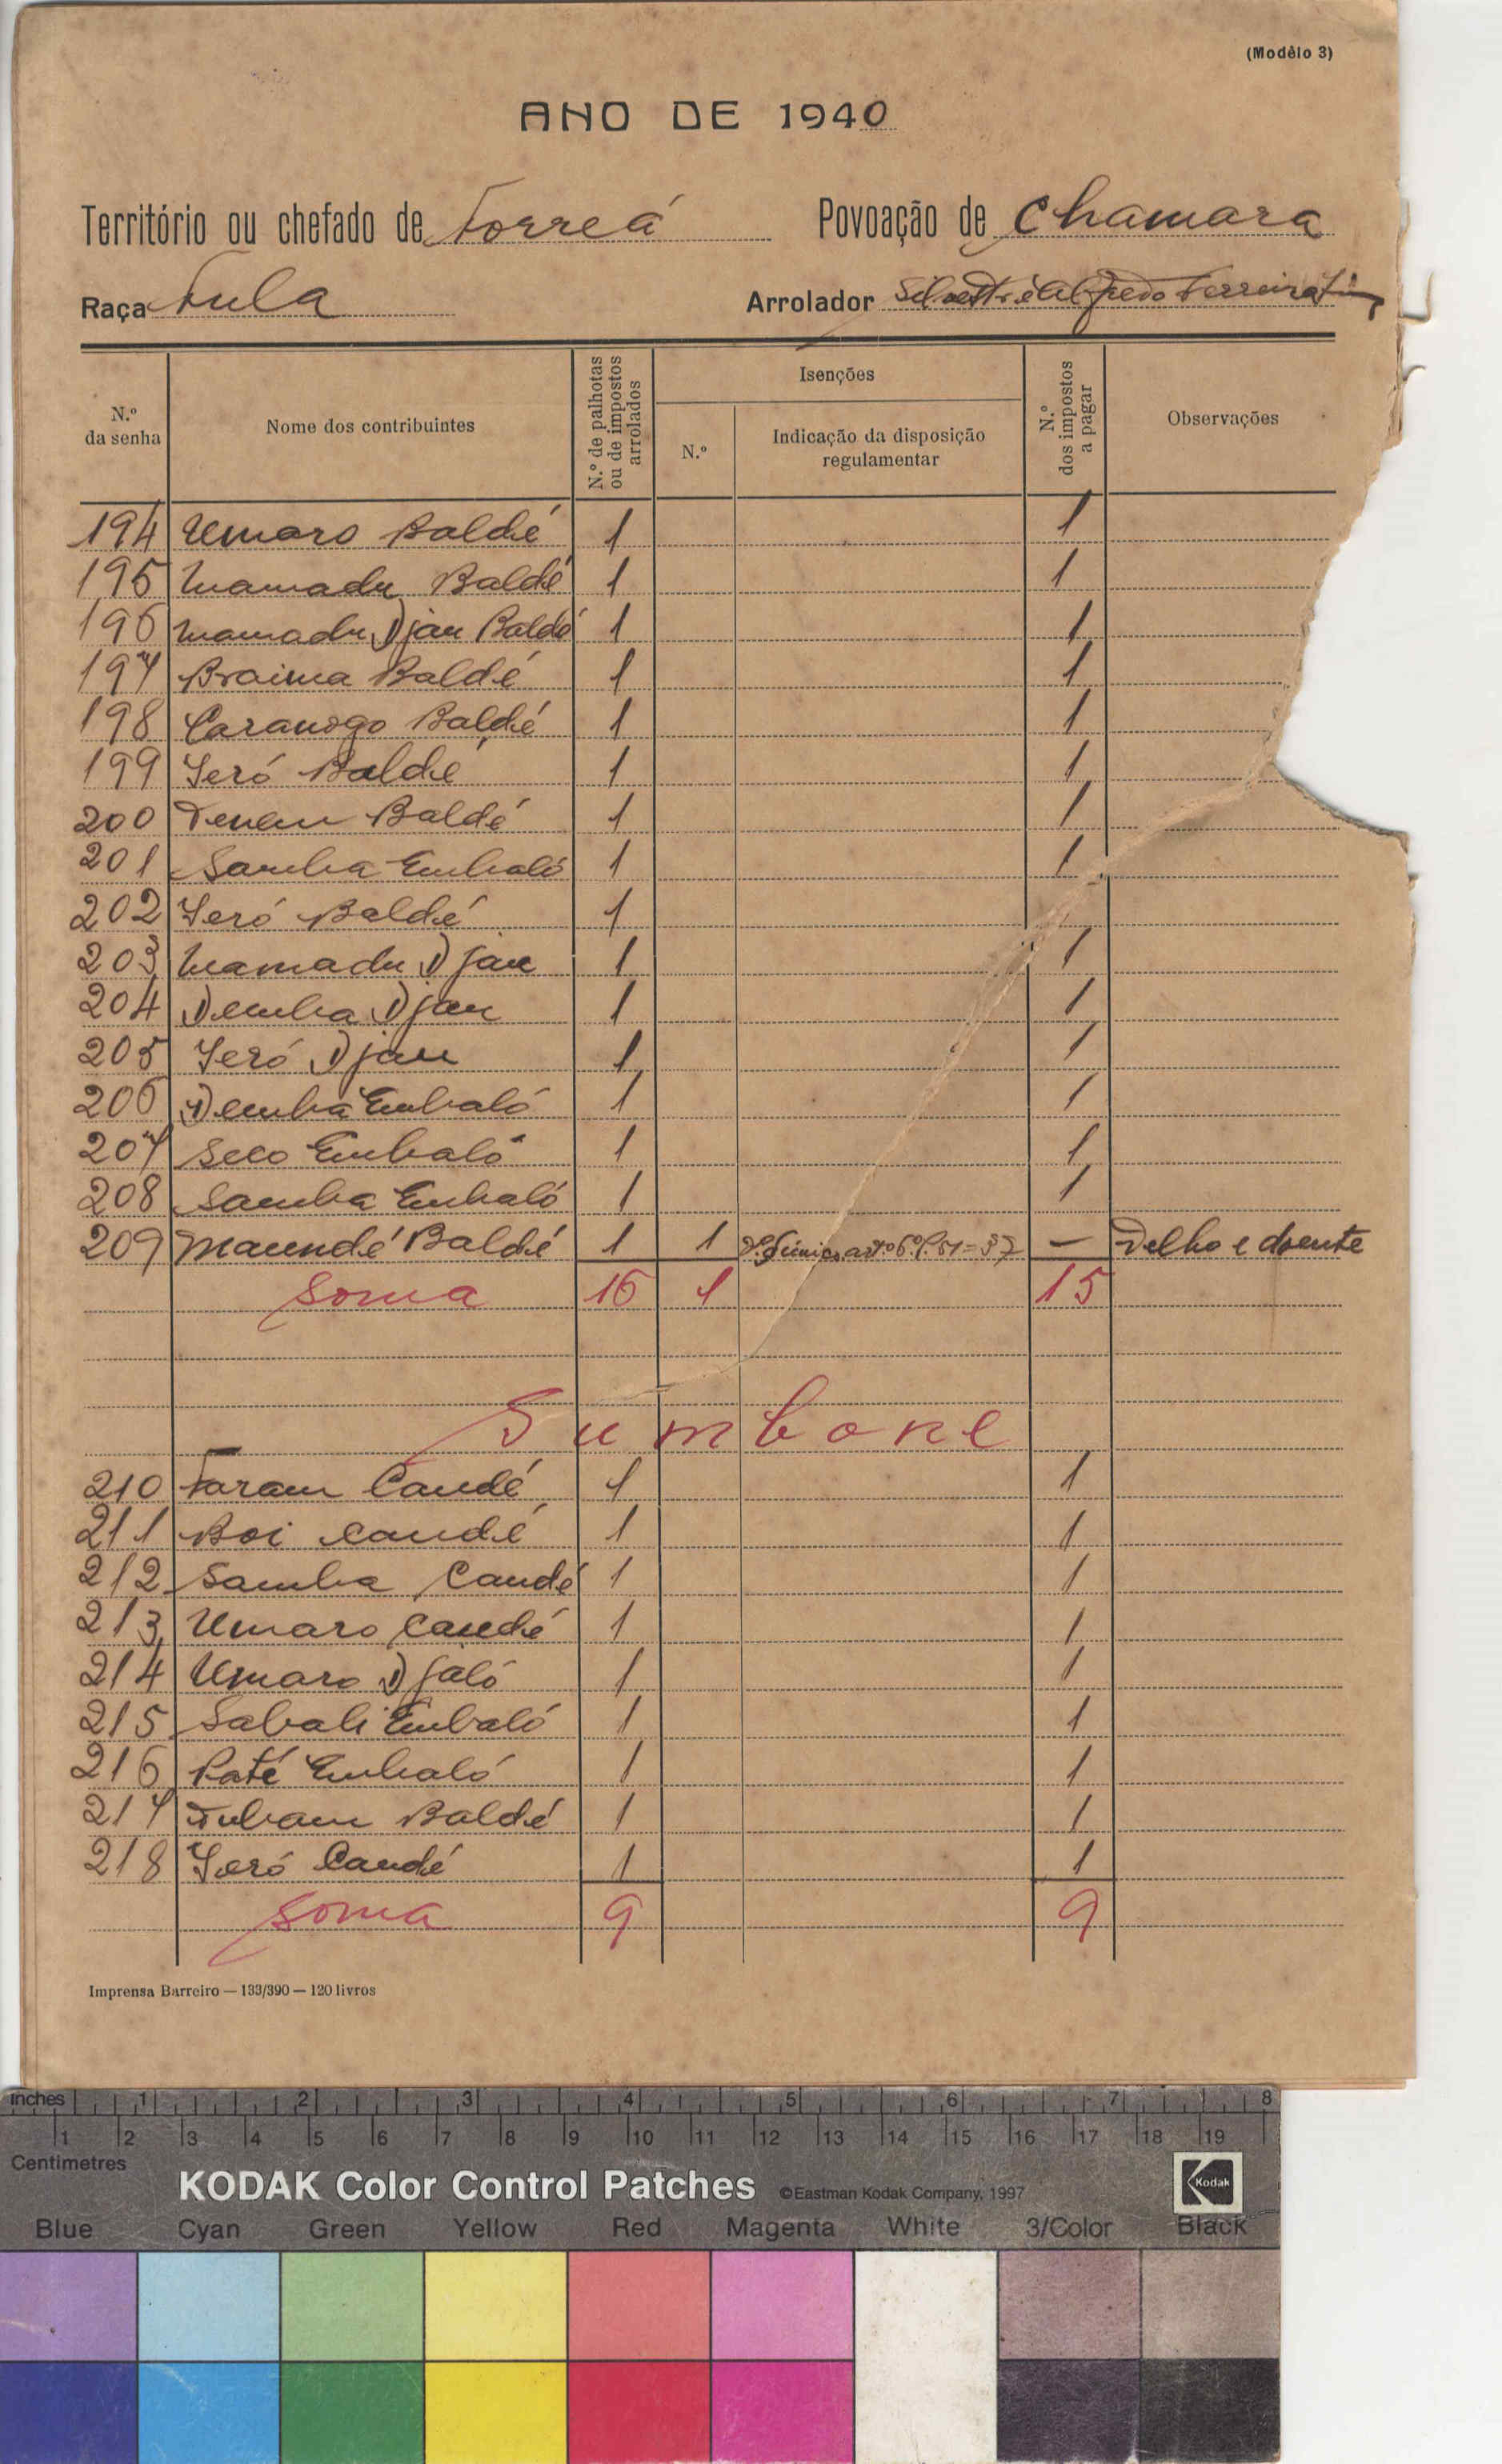 (Modêlo 3)
ANO DE 1940
Território ou chefado de Forreá Povoação de Chamara
Raça Fula Arrolador Silvestre Alfredo Ferreira
N.º da senha
Nome dos contribuintes
N.º de palhotas ou de impostos arrolados
Isenções
N.º
Indicação da disposição regulamentar
N.º dos impostos a pagar
Observações
194 Umaro Baldé 1 1
195 Mamadu Baldé 1 1
196 Mamadu Djau Baldé 1 1
197 Braima Baldé 1 1
198 Caramogo Baldé 1 1
199 Seró Baldé 1 1
200 Tenem Baldé 1 1
201 Samba Embaló 1 1
202 Seró Baldé 1 1
203 Mamadu Djau 1 1
204 Demba Djau 1 1
205 Seró Djau 1 1
206 Demba Embaló 1 1
207 Seco Embaló 1 1
208 Samba Embaló 1 1
209 Maundé Baldé 1 1 § único art.º 6.º — Velho e doente
Soma 16 1 15
Sumbone
210 Faram Candé 1 1
211 Boi Candé 1 1
212 Samba Candé 1 1
213 Umaro Candé 1 1
214 Umaro Djaló 1 1
215 Sabali Embaló 1 1
216 Paté Embaló 1 1
217 Tubam Baldé 1 1
218 Seró Candé 1 1
Soma 9 9
Imprensa Barreiro — 133/390 — 120 livros
Inches 1 2 3 4 5 6 7 8
1 2 3 4 5 6 7 8 9 10 11 12 13 14 15 16 17 18 19
Centimetres
KODAK Color Control Patches ©Eastman Kodak Company, 1997 Kodak
Blue Cyan Green Yellow Red Magenta White 3/Color Black